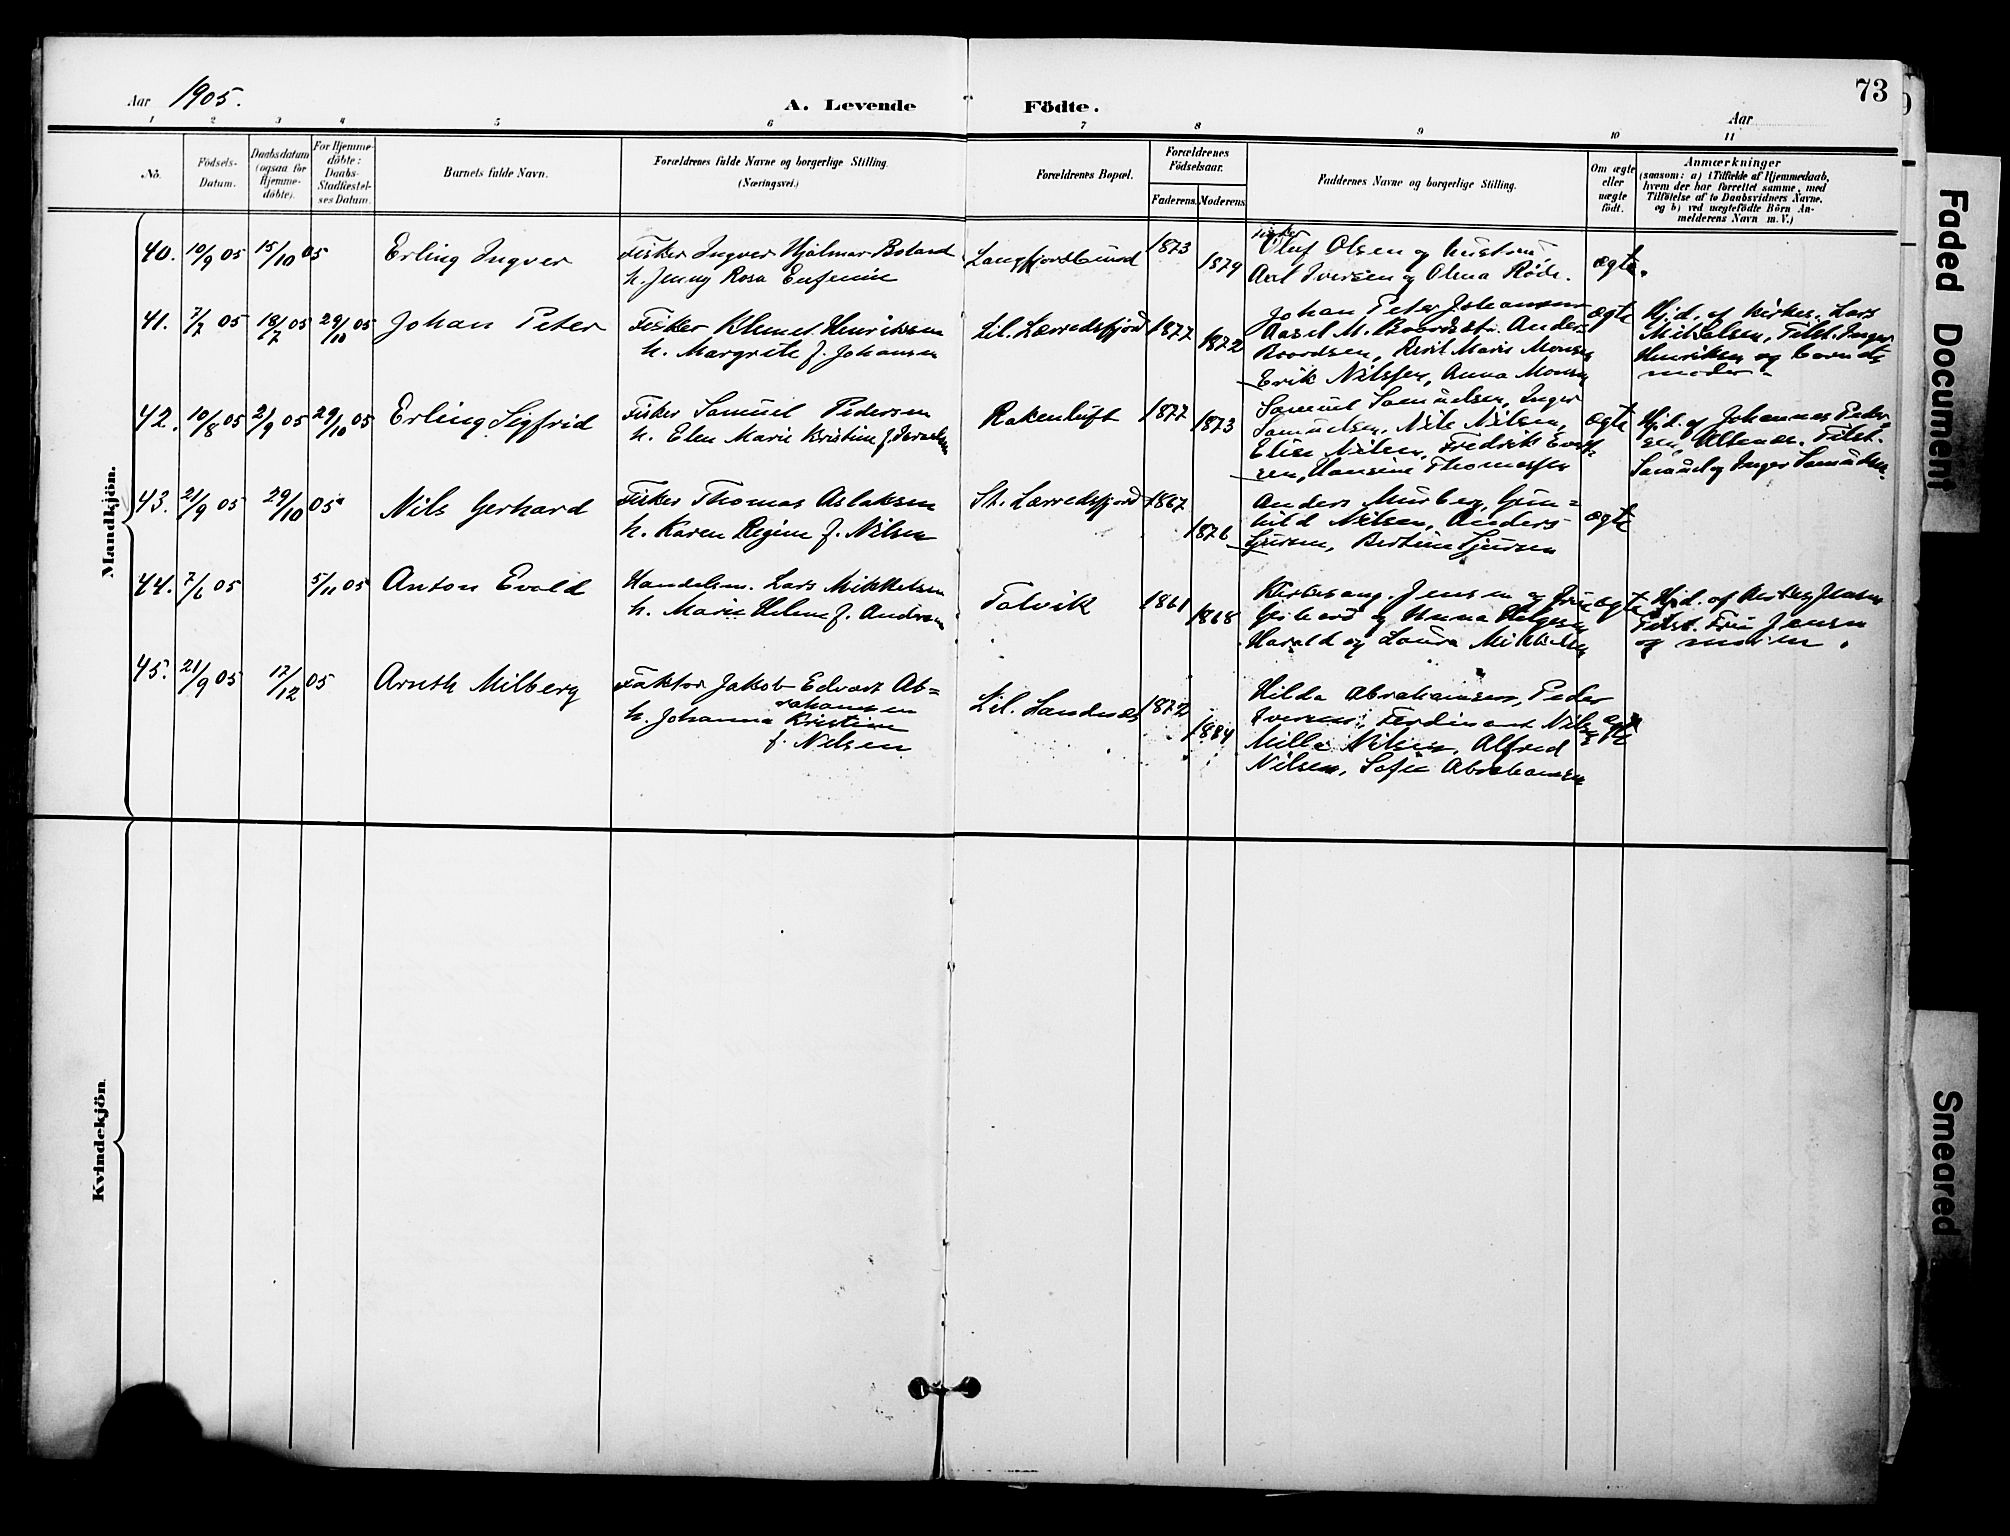 73
Aar 1905.
A. Levende Födte.
Aar
1 2 3 4 5 6 7 8 9 10 11
No.
Födsels-
Datum.
Daabsdatum
(ogsaa for
Hjemme-
döbte).
For Hjemme-
döbte:
Daabs-
Stadfæstel-
ses Datum.
Barnets fulde Navn.
Forældrenes fulde Navne og borgerlige Stilling.
(Næringsvei.)
Forældrenes Bopæl.
Forældrenes
Födselsaar.
Faderens. Moderens.
Faddernes Navne og borgerlige Stilling.
Om ægte
eller
uægte
födt.
Anmærkninger
(saasom: a) i Tilfælde af Hjemmedaab,
hvem der har forrettet samme, med
Tilföielse af to Daabsvidners Navne,
og b) ved uægtefödte Börn An-
melderens Navn m. V.)
Mandkjön.
40. 10/9 05 15/10 05 Erling Ingver
Fisker Ingver Hjalmar Boland
h. Jenny Rosa Eufemie
Langfjordbund 1873 1879
Oluf Olsen og hustru,
Axel Iversen og Olena Röde.
ægte.
41. 7/7 05 18/7 05 29/10 05 Johan Peter
Fisker Klemet Henriksen
h. Margrete f. Johansen
Lil. Lerredsfjord 1877 1872
Johan Peter Johansen
Aasel M. Baards. Anders
Baardsen, Berit Marie Monsen
Erik Nilssen, Anna Monsen
ægte
Hj.d. af kirkes. Lars
Mikkelsen, Tilst. Inger
Henriksen og barnets
moder.
42. 10/8 05 2/9 05 29/10 05 Erling Sigfrid
Fisker Samuel Pedersen
h. Elen Marie Kristine f.
Rakenluft 1877 1873
Samuel Samuelsen, Inger
Samuelsen, Nils Nilsen,
Elise Nilsen, Fredrik Evert-
sen, Hansine Thomassen
ægte
Hj.d. af Johannes Peder-
sen Altenes. Tilst.
Samuel og Inger Samuelsen.
43. 21/9 05 29/10 05 Nils Gerhard
Fisker Thomas Aslaksen
h. Karen Regine f. Nilsen
St. Lerredsfjord 1867 1876
Anders Murberg, Gun-
hild Nilsen, Anders
Sjursen, Bertine Sjursen
ægte
44. 7/6 05 5/11 05 Anton Evald
Handelsm. Lars Mikkelsen
h. Marie Helene f. Andersen
Talvik 1861 1868
Kirkesang. Jensen og Frue
Gerhard og Anna Helgesen
Harald og Laura Mikkelsen
ægte
Hj.d. af kirkes. Jensen
Tilst. Fru Jensen
og moren.
45. 21/9 05 17/12 05 Arnth Milberg
Faktor Jakob Edvart Ab-
rahamsen
h. Johanna Kristine
f. Nilsen
Lil. Sandnes 1872 1884
Hilda Abrahamsen, Peder
Iversen, Ferdinant Nilsen
Milla Nilsen, Alfred
Nilsen, Sofie Abrahamsen
ægte
Kvindekjön.
Faded Document
Smeared